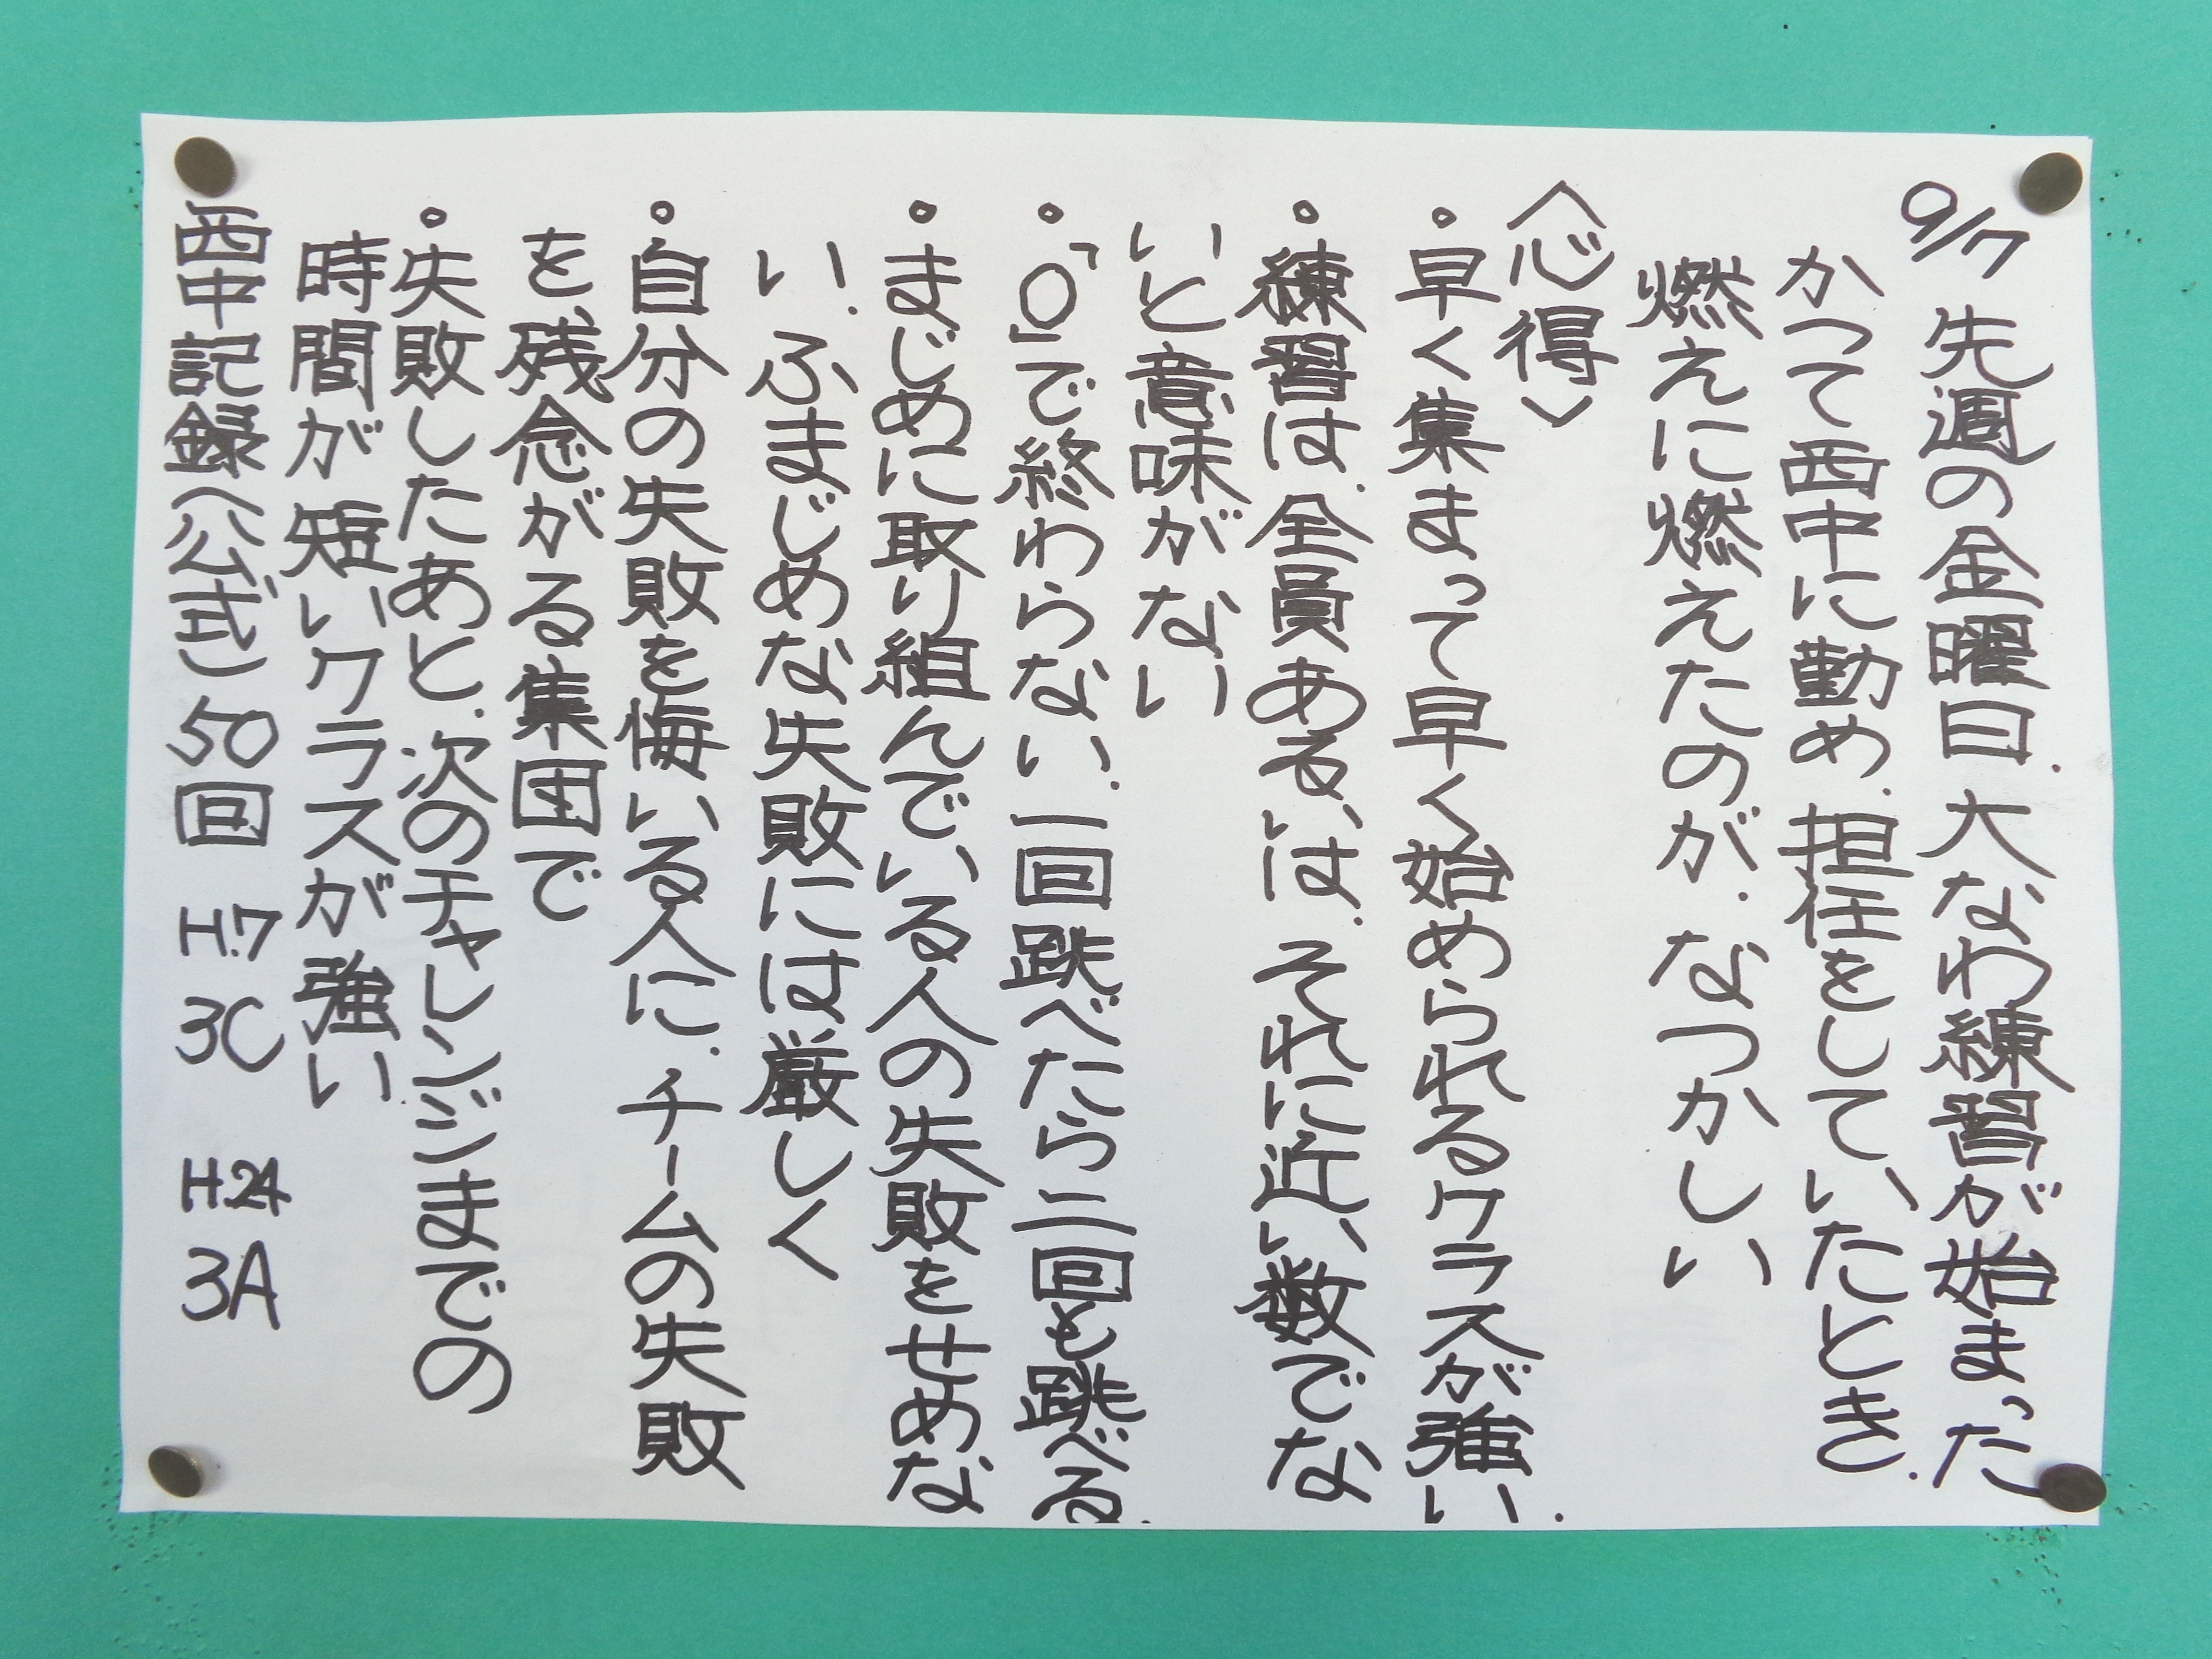 9/7 先週の金曜日.大なわ練習が始まった
かつて西中に勤め.担任をしていたとき.
燃えに燃えたのが.なつかしい
〈心得〉
。早く集まって早く始められるクラスが強い.
。練習は.全員あるいは.それに近い数でな
いと意味がない
。「0」で終わらない.一回跳べたら二回も跳べる.
。まじめに取り組んでいる人の失敗をせめな
い!ふまじめな失敗には厳しく
。自分の失敗を悔いる人に.チームの失敗
を残念がる集団で
。失敗したあと.次のチャレンジまでの
時間が短いクラスが強い.
西中記録〈公式〉50回 H.7 3C H.24 3A